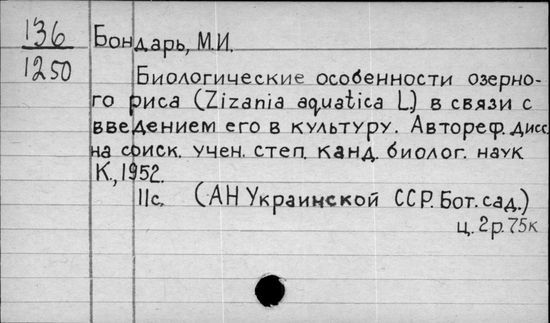 136
1250
Бондарь, М.И.
Биологические особенности озерно-
го риса (Zizania aquatica L.) в связи с
введением его в культуру. Автореф. дисс.
на соиск. учен. степ. канд. биолог. наук
К., 1952.
11с. (АН Украинской ССР. Бот. сад.)
ц. 2р. 75к